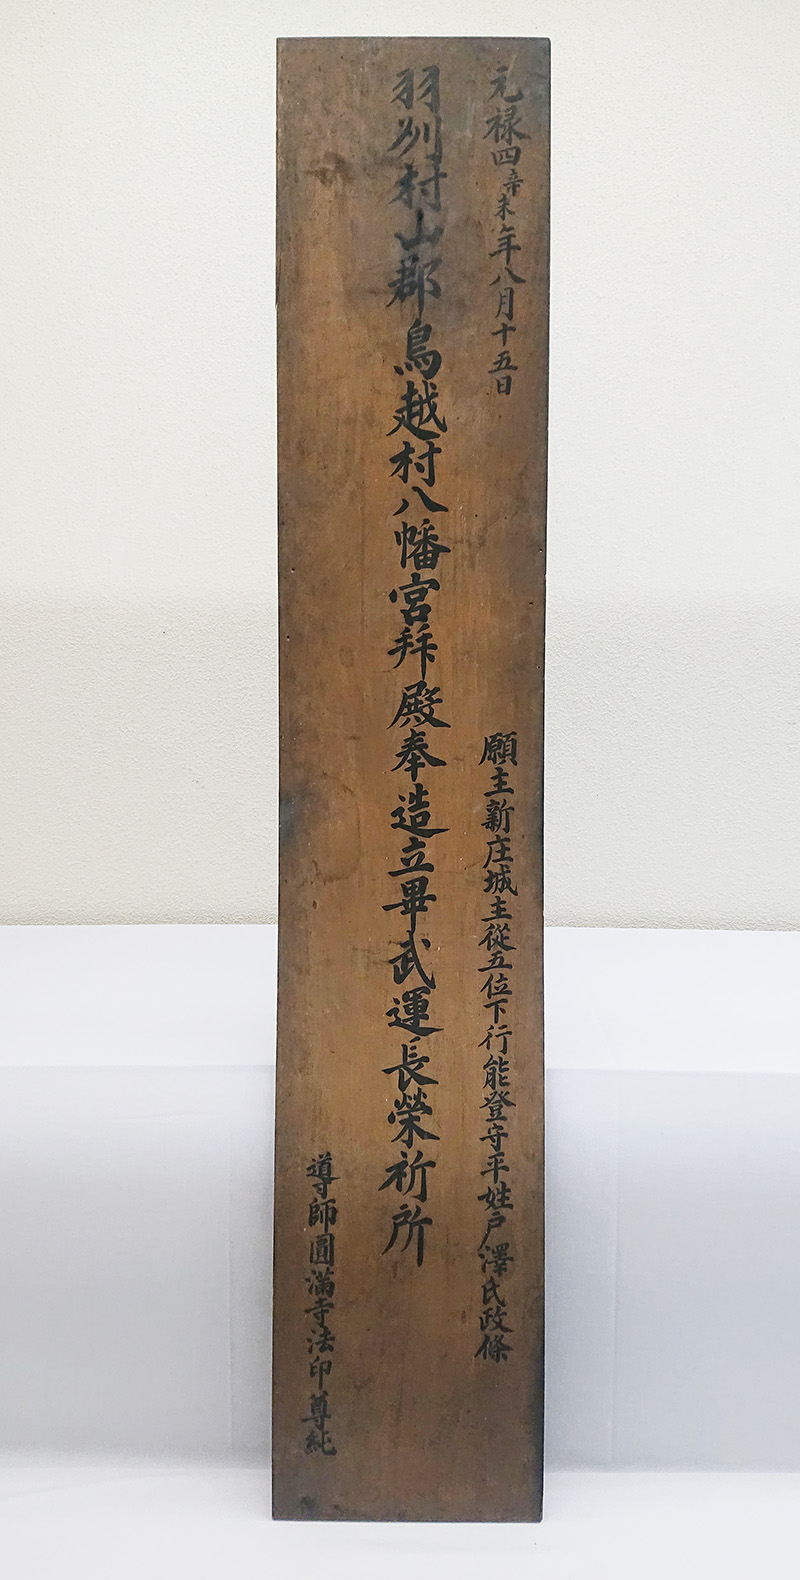 元禄四辛未年八月十五日
願主新庄城主從五位下行能登守平姓戸澤氏政條
羽刕村山郡鳥越村八幡宮拜殿奉造立畢武運長榮祈所
導師圓滿寺法印尊純